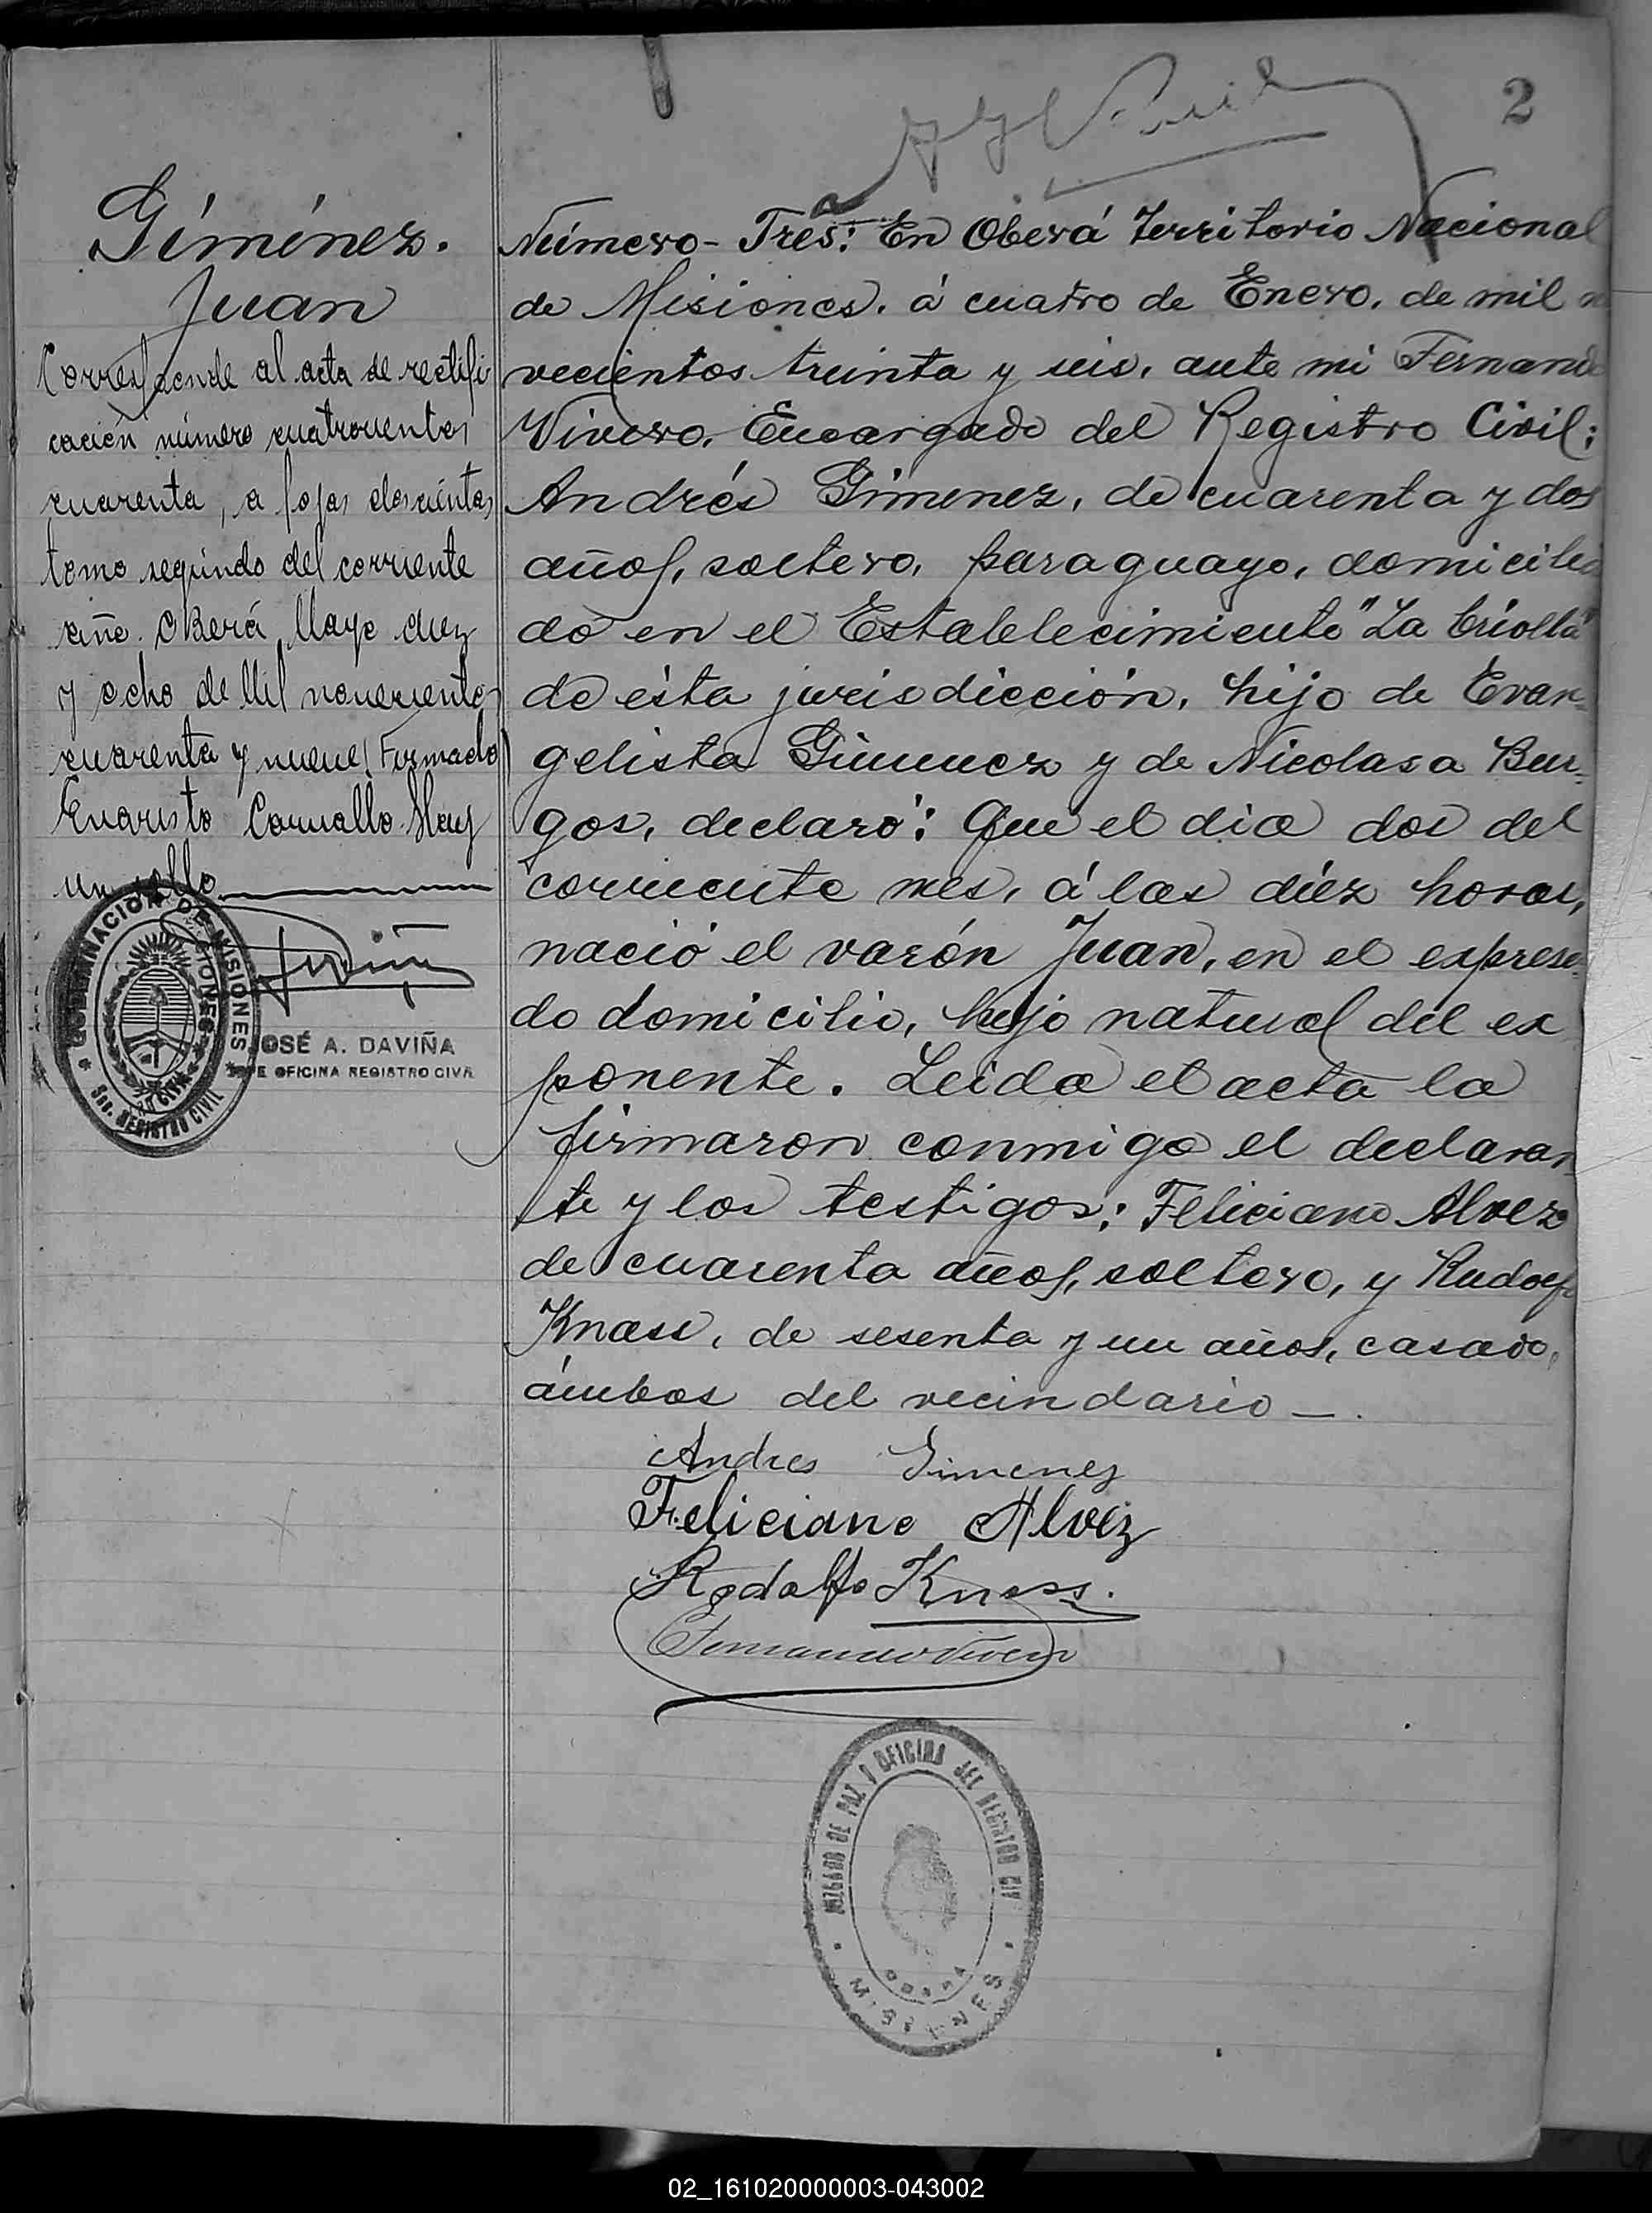 2
Giménez.
Juan
Corresponde al acta de rectifi
cación número cuatrocientos
cuarenta, a fojas doscientas
tomo segundo del corriente
año. Oberá, Mayo diez
y ocho de Mil novecientos
cuarenta y nueve. Firmado
Evaristo Carvallo. Hay
un sello
GOBERNACION DE MISIONES
Sec. REGISTRO CIVIL
JOSÉ A. DAVIÑA
JEFE OFICINA REGISTRO CIVIL
Número - Tres: En Oberá Territorio Nacional
de Misiones. á cuatro de Enero. de mil no
vecientos treinta y seis, ante mi Fernando
Vivero. Encargado del Registro Civil:
Andrés Gimenez, de cuarenta y dos
años, soltero, paraguayo, domicilia
do en el Establecimiento "La Criolla"
de ésta jurisdicción, hijo de Evan-
gelista Gimenez y de Nicolasa Bur-
gos, declaró: Que el dia dos del
corriente mes, á las diéz horas,
nació el varón Juan, en el expresa-
do domicilio, hijo natural del ex
ponente. Leida el acta la
firmaron conmigo el declaran
te y los testigos: Feliciano Alvez
de cuarenta años, soltero, y Rudolf
Knass, de sesenta y un años, casado,
ámbos del vecindario —.
Andres Gimenez
Feliciano Alvez
Rodolfo Knass.
Fernando Vivero
JUZGADO DE PAZ Y OFICINA DEL REGISTRO CIVIL
OBERA
MISIONES
02_161020000003-043002